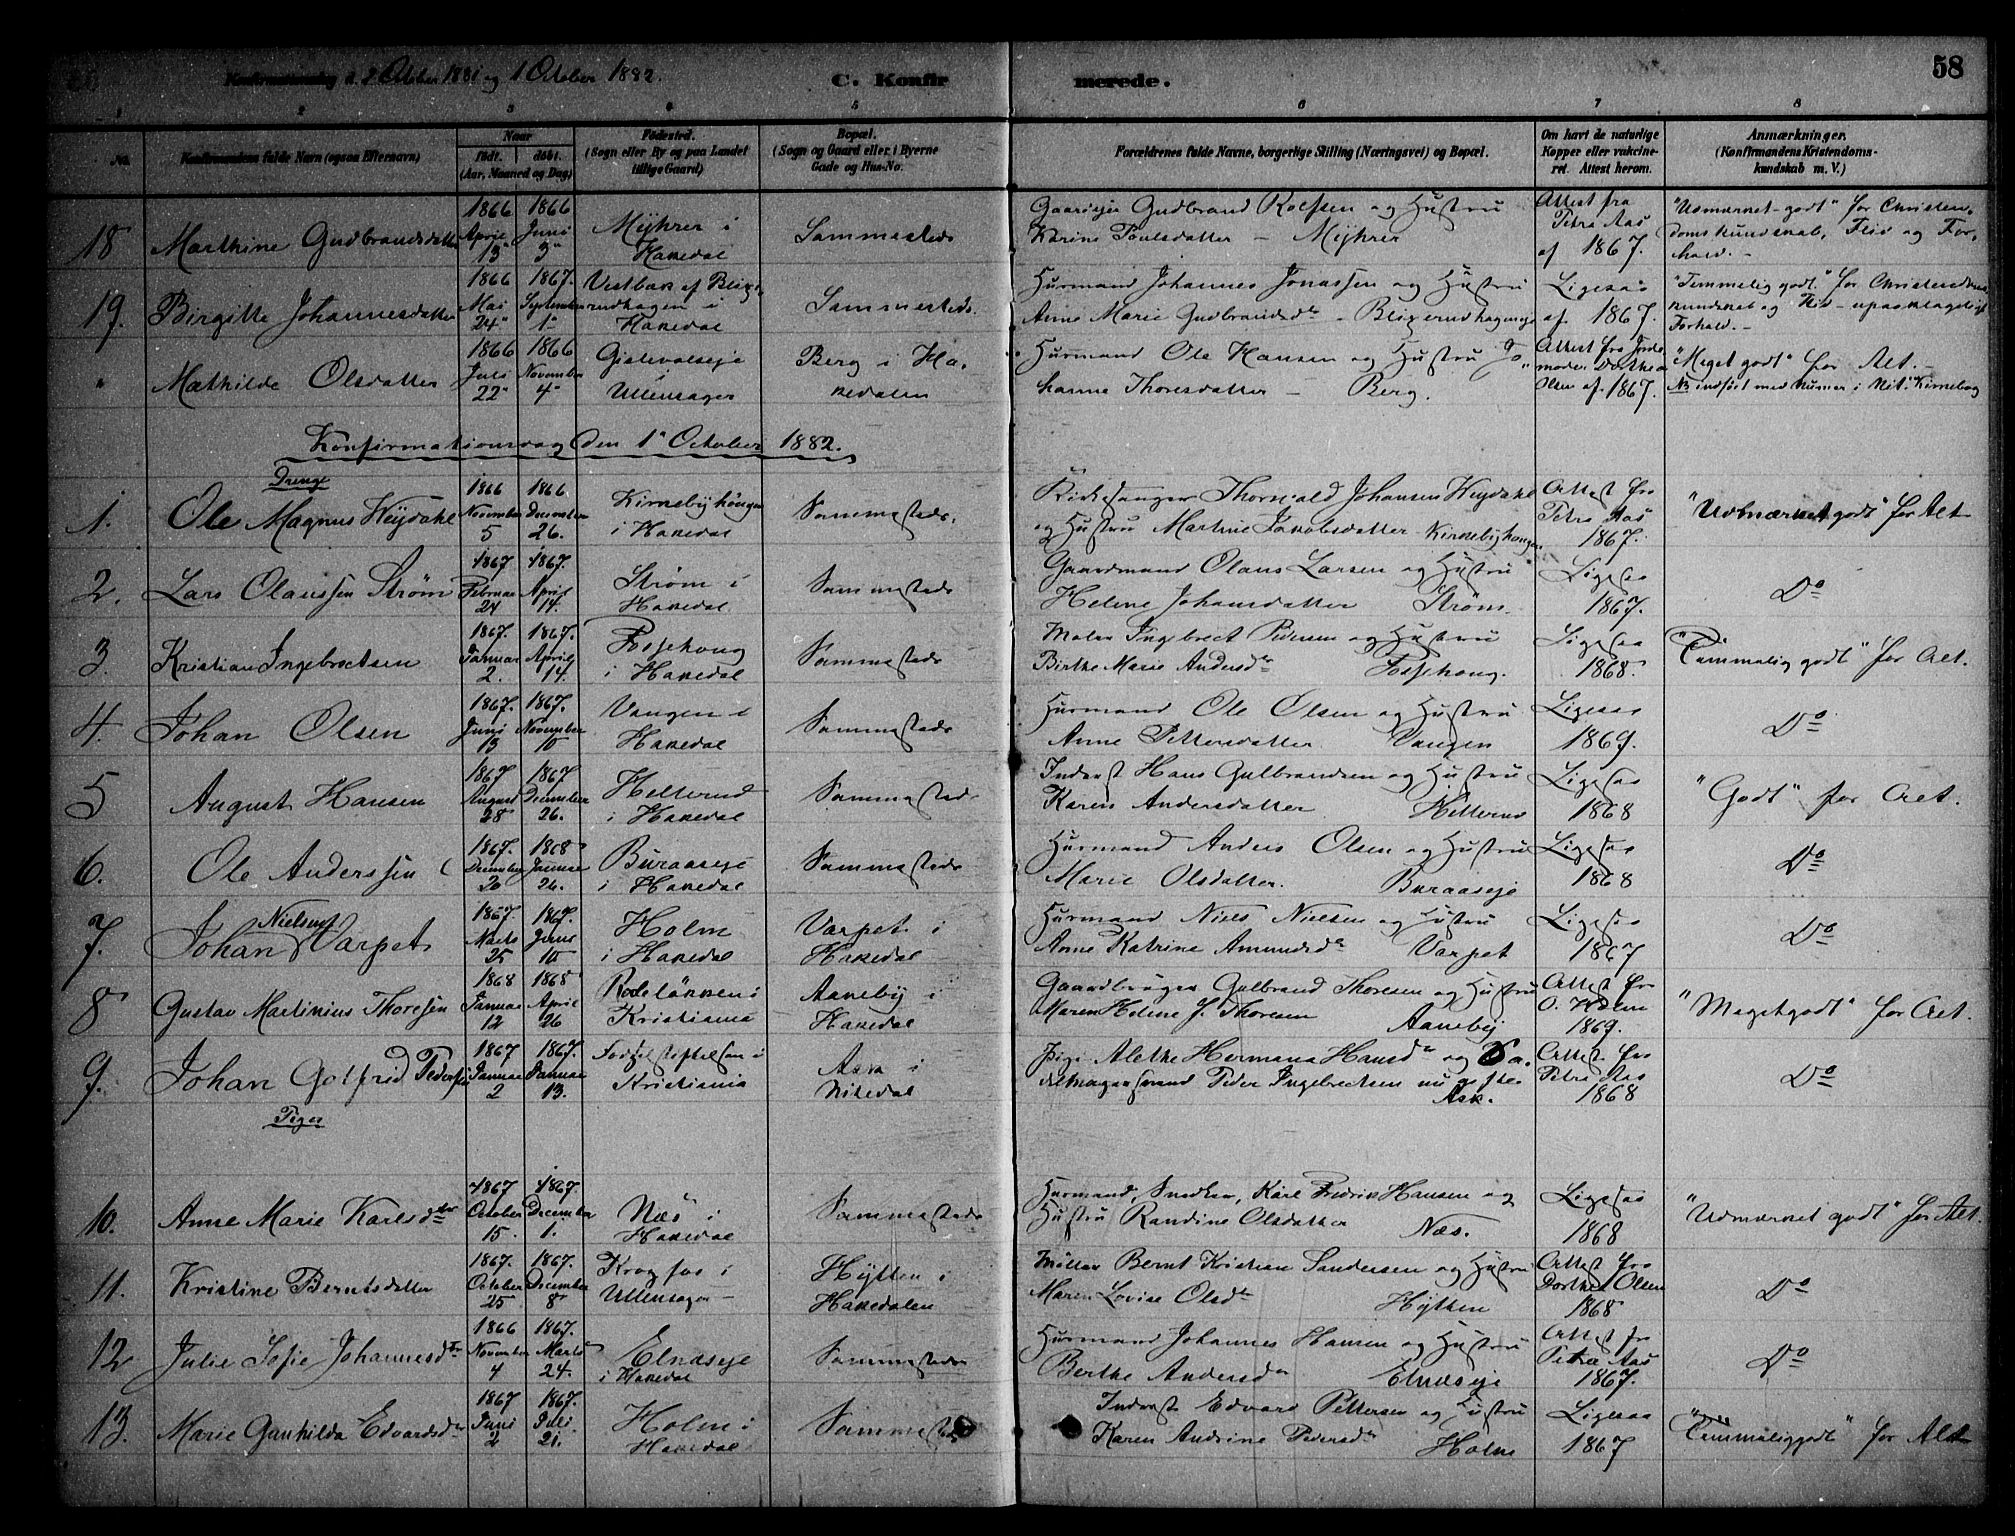 Konfirmationsdag d. 2 October 1881 og 1 October 1882.
C. Konfirmerede.
58
1 2 3 4 5 6 7 8
No.
Konfirmandens fulde Navn (ogsaa Efternavn)
Naar
født. døbt.
(Aar, Maaned og Dag)
Fødested.
(Sogn eller By og paa Landet
tillige Gaard)
Bopæl.
(Sogn og Gaard eller i Byerne
Gade og Hus-No.
Forældrenes fulde Navne, borgerlige Stilling (Næringsvei) og Bopæl.
Om havt de naturlige
Kopper eller vakcine-
ret. Attest herom.
Anmærkninger.
(Konfirmandens Kristendoms-
kundskab m. V.)
18 Marthine Gudbrandsdatter
1866 April 13
1866 Juni 3
Myhrer i
Hakedal
Sammesteds
Gaardejer Gudbrand Rolfsen og Hustru
Karine Poulsdatter – Myhrer
Attest fra
Petra Aas
af 1867.
"Udmærket-godt" for Christen-
domskundskab, Flid og For-
hold. –
19. Birgitte Johannesdatter
1866 Mai 24
1867. September 1
Vestbak af
i
Hakedal
Sammesteds.
Husmand Johannes Jonassen og Hustru
Anne Marie Gudbrandsdr –
Ligesaa
af 1867.
"Temmelig godt" for Christendoms
kundskab og Flid – upaaklageligt
Forhold. –
" Mathilde Olsdatter
1866 Juli 22
1866 November 4
Gislevoldseje
Ullensager
Berg i Ha-
kedalen
Husmand Ole Hansen og Hustru Jo
hanne Thoresdatter – Berg.
Attest fra Jorde
moder Dorthea
Olsen af 1867.
"Meget godt" for Alt. –
NB indført med Numer i Nit. Kirkebog
Konfirmationsdag den 1 October 1882.
Drenge
1. Ole Magnus Heydahl
1866 November 5
1866 December 26.
Kirkebyhaugen
i Hakedal
Sammesteds.
Kirkesanger Thorvald Johansen Heydahl
og Hustru Martine Jakobsdatter Kirkebyhaugen
Attest fra
Petra Aas
1867.
"Udmærket godt" for Alt
2. Lars Olaussen Strøm
1867 Februar 24
1867. April 14.
Strøm i
Hakedal
Sammesteds
Gaardmand Olaus Larsen og Hustru
Helene Johansdatter Strøm.
Ligesaa
1867.
Do
3. Kristian Ingebrechtsen
1867. Januar 2.
1867. April 14.
Fossehaug
i Hakedal
Sammesteds
Møller Ingebrect Pedersen og Hustru
Birthe Marie Andersdr Fossehaug.
Ligesaa
1868.
"Temmelig godt" for Alt.
4. Johan Olsen
1867. Juni 13
1867. November 10
Vangen i
Hakedal
Sammesteds
Husmand Ole Olsen og Hustru
Anne Pettersdatter Vangen
Ligesaa
1869.
Do
5 August Hansen
1867 August 28
1867 December 26.
Hellerud
i Hakedal
Sammesteds
Inderst Hans Gulbrandsen og Hustru
Karen Andersdatter Hellerud
Ligesaa
1868
"Godt" for Alt.
6. Ole Anderssen
1867. December 20
1868 Januar 26.
Buraaseje
i Hakedal
Sammesteds
Husmand Anders Olsen og Hustru
Marie Olsdatter. Buraaseje
Ligesaa
1868
Do
7. Johan Nielsen Varpet
1867. Marts 25
1867. Juni 10
Holm
i Hakedal
Varpet i
Hakedal
Husmand Niels Nielsen og Hustru
Anne Katrine Amundsdr Varpet
Ligesaa
1867
Do
8 Gustav Martinius Thoresen
1868 Januar 12
1868 April 26
Rodeløkken i
Kristiania
Aaneby i
Hakedal
Gaardbruger Gulbrand Thoresen og Hustru
Maren Helene J. Thoresen Aaneby
Attest fra
O. Holm
1869.
"Megetgodt" for Alt.
9. Johan Gotfrid Pedersen
1867 Januar 2
1867. Januar 13.
Fødselsstiftelsen i
Kristiania
Ask i
Nitedal
Pige Alethe Hermana Hansdr og Sa-
delmagersvend Peder Ingebrectsen nu gifte
Ask.
Attest fra
Petra Aas
1868
Do
Piger
10. Anne Marie Karlsdtter
1867 October 15.
1867. December 1.
Næs i
Hakedal
Sammesteds
Husmand, Snedker, Karl Fredrik Hansen og
Hustru Randine Olsdatter Næs.
Ligesaa
1868
"Udmærket godt" for Alt.
11. Kristine Berntsdatter
1867. October 25
1867. December 8
Krogfos i
Ullensager –
Hytten i
Hakedalen
Møller Bernt Kristian Sandersen og Hustru
Maren Lovise Olsdr Hytten
Attest fra
Dorthea Olsen
1868
Do
12 Julie Sofie Johannesdtr
1866 November 4
1867. Marts 24.
Elnæseje
i Hakedal
Sammesteds
Husmand Johannes Hansen og Hustru
Berthe Andersdr Elnæseje
Attest fr
Petra Aas
1867.
Do
13. Marie Gunhilda Edvardsdr
1867 Juni 2
1867. Juli 21.
Holm i
Hakedal
Sammesteds
Inderst Edvard Pettersen og Hustru
Karen Andrine Pedersdr Holm
Ligesaa
1867
"Temmeliggodt" for Alt